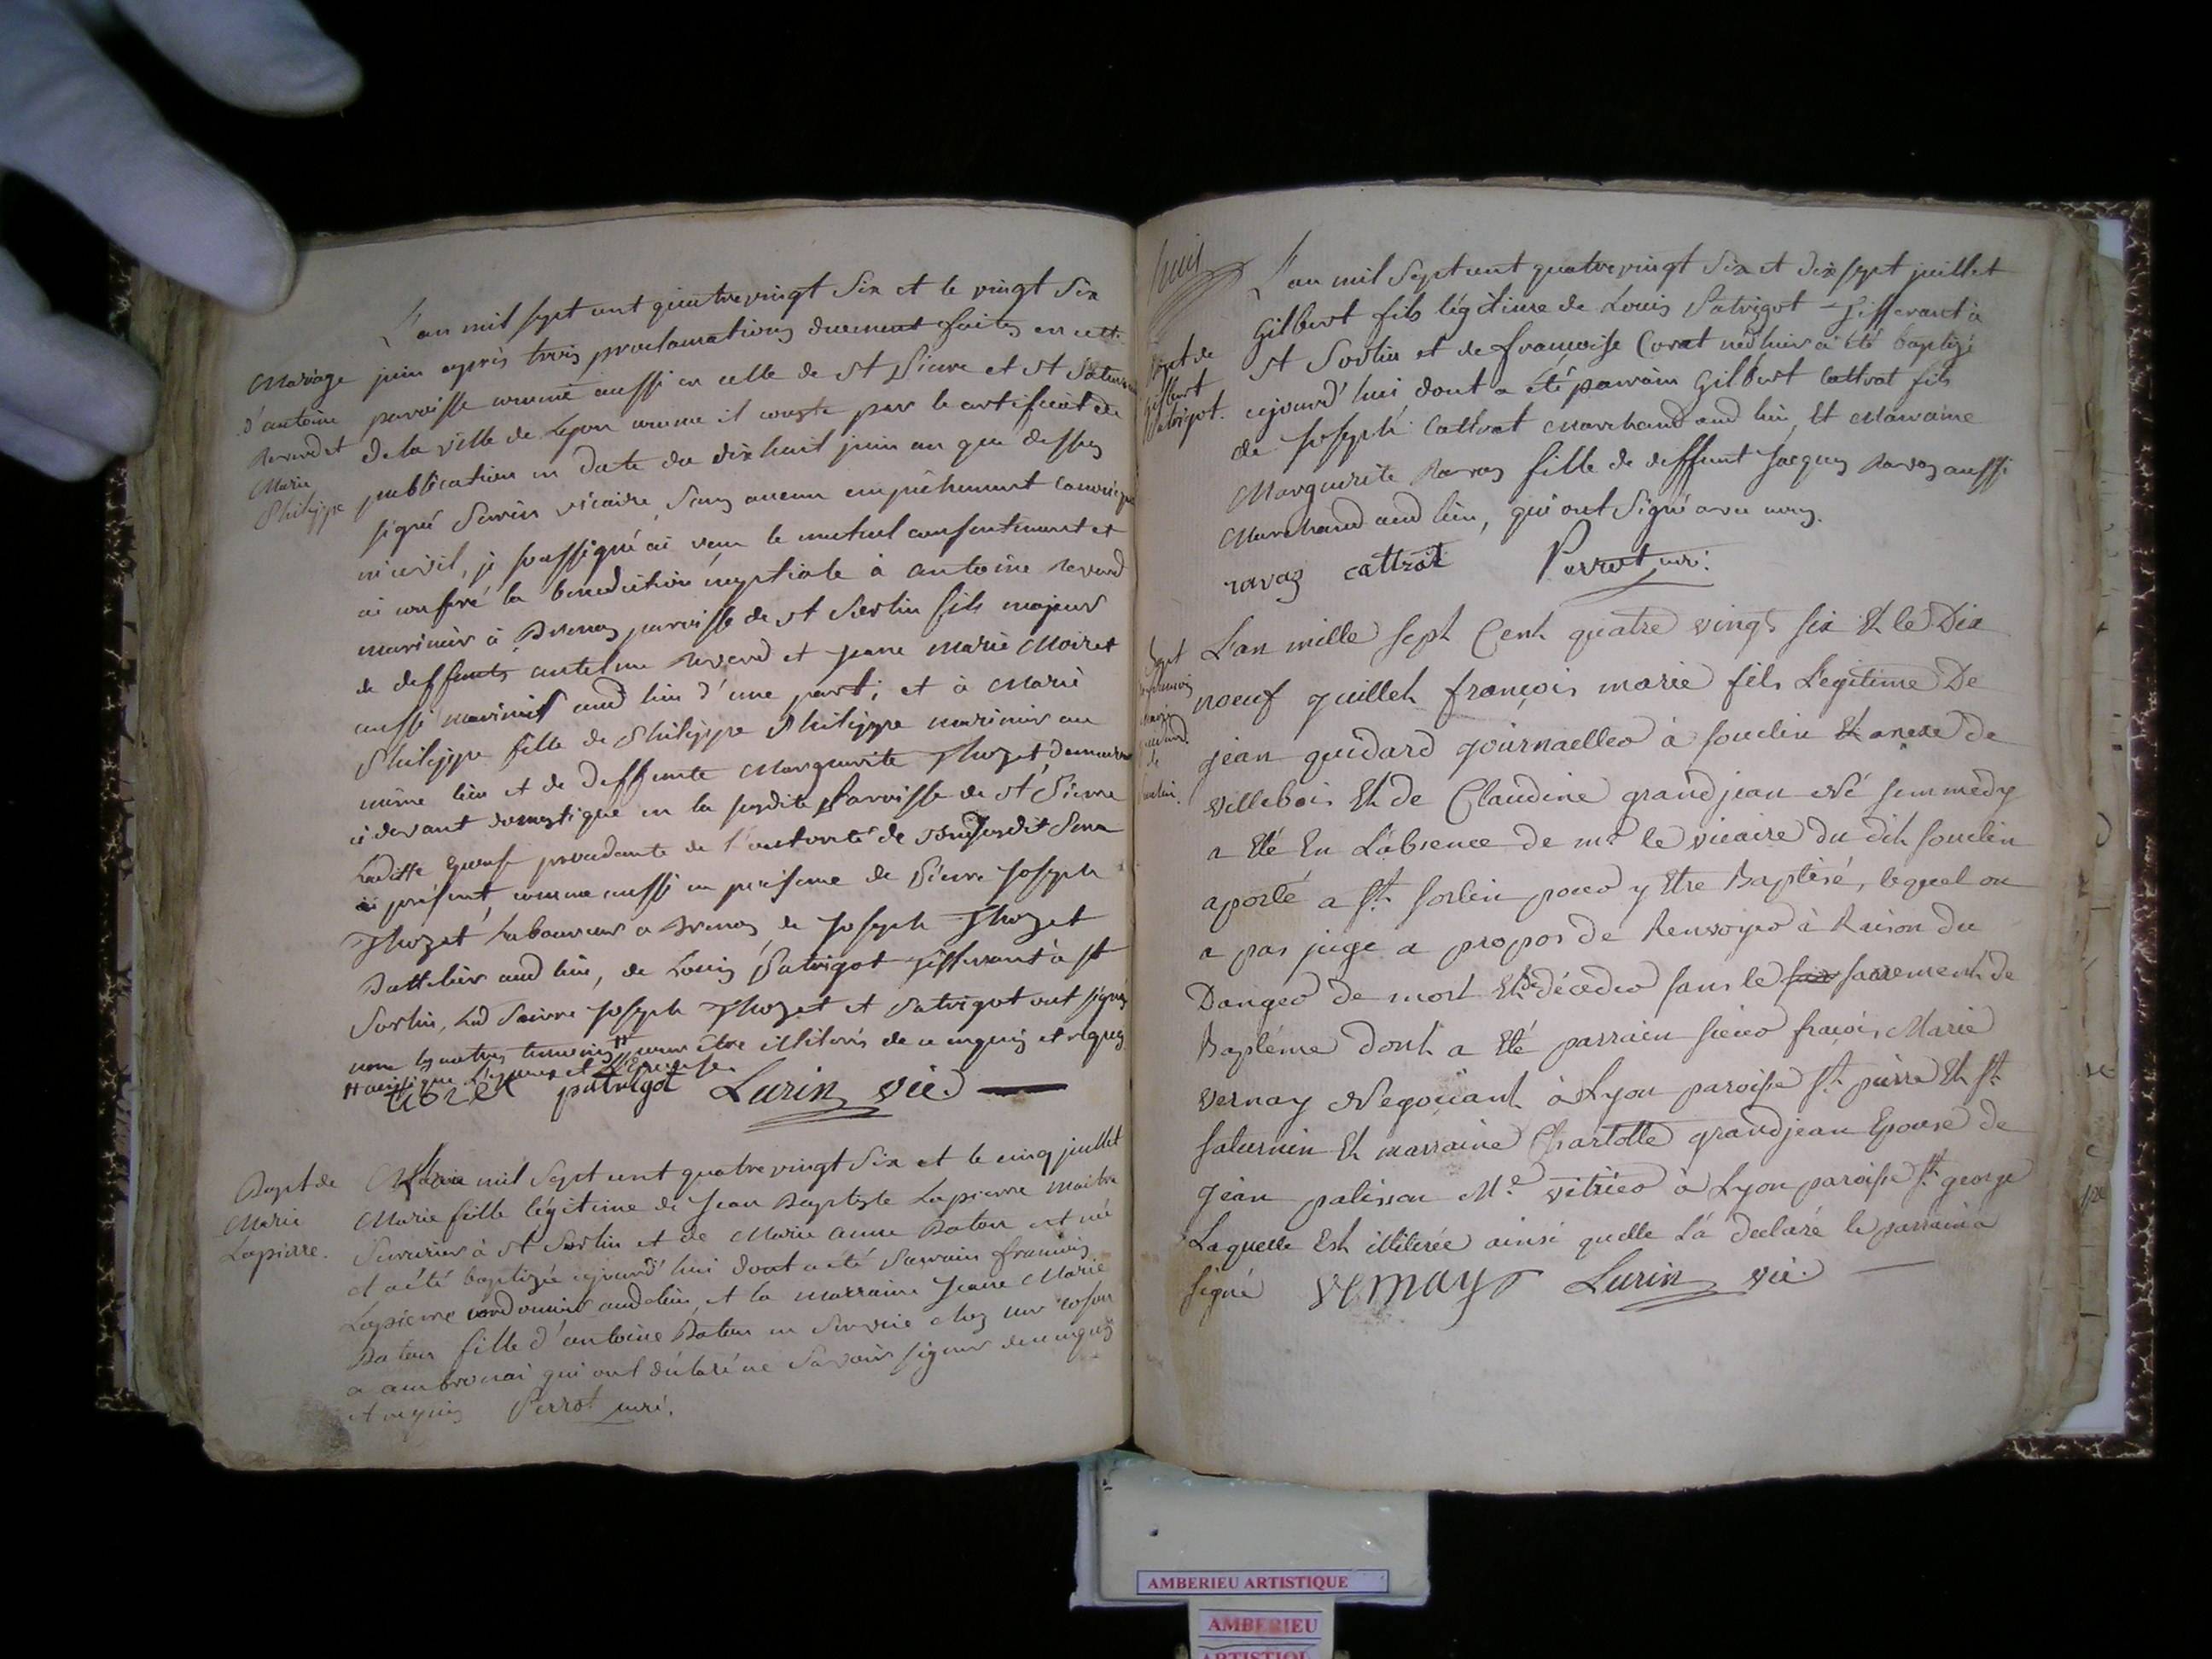 L'an mil sept cent quatrevingt six et le vingt six
Mariage
d'antoine
Reverdet
Marie
Philippe
juin après trois proclamations duement faites en cette
paroisse comme aussi en celle de St Pierre et St Saturnin
de la ville de Lyon comme il conste par le certificat de
publication en date du dix huit juin an que dessus
signé vicaire, sans aucun empêchement canonique
ni civil, je soussigné ai reçu le mutuel consentement et
ai conferé la benediction nuptiale à antoine Reverd
marinier à paroisse de st Sorlin fils majeur
de deffunts antelme Reverd et jeane marie Moiret
aussi mariniers aud lieu d'une part; et à Marie
Philippe fille de Philippe Philippe marinier au
même lieu et de deffunte Marguerite Thozet, demeurant
ci devant domestique en la susdite Paroisse de St Pierre
Laditte Epouse procedante de l'autorité de
ici présent, comme aussi en présence de Pierre Joseph
Thozet Laboureur a de Joseph Thozet
Battelier aud lieu, de Louis Patrigot Tisserant à st
Sorlin, Led Pierre Joseph Thozet et Patrigot ont signé
non les autres temoins pour être illiterés de ce enquis et requis
ainsi que l'epoux et l'Epouse.
tozet patrigot Lurin vic.
Bapt de
Marie
Lapierre.
L'an mil sept cent quatre vingt six et le cinq juillet
Marie fille légitime de Jean Baptiste Lapierre maitre
Serrurier à st Sorlin et de Marie anne Baton est né
et a été baptizée aujourd'hui dont a été Parrain francois
Lapierre cordonnier aud lieu, et la marraine Jeane Marie
Baton fille d'antoine Baton en service chez mr
a ambronai qui ont déclaré ne savoir signer de ce enquis
et requis Perrot curé.
L'an mil sept cent quatrevingt six et dix sept juillet
Bapt de
Gilbert
Patrigot.
Gilbert fils légitime de Louis Patrigot Tisserant à
st Sorlin et de francoise Corat né hier a été baptizé
aujourd'hui dont a été parrain Gilbert Cattrat fils
de Joseph Cattrat marchand aud lieu, et Maraine
Marguerite Ravaz fille de deffunt Jacques Ravaz aussi
Marchand aud lieu, qui ont signé avec nous.
ravaz cattrat Perrot curé.
Bapt
de francois
marie
guidard
de
souclin.
L'an mille sept Cent quatre vingt six Et le Dix
noeuf juillet françois marie fils Legitime De
jean guidard journaellier à souclin Et anexe de
villebois Et de Claudine grandjean né samedy
a Eté En L'absence de mr le vicaire du dit souclin
aporté a st sorlin pour y Etre Baptisé, lequel on
a pas jugé a propos de Renvoyer à Raison du
Danger de mort Et de décéder sans le sacrement de
Baptême dont a Eté parrain sieur françois Marie
vernay Négociant à Lyon paroisse st pierre Et st
saturnin Et marraine Charlotte grandjean Epouse de
jean palisson Me vitrier à Lyon paroisse st george
Laquelle Est illiterée ainsi quelle L'a declaré le parrain a
signé vernay Lurin vic.
AMBERIEU ARTISTIQUE
AMBERIEU
ARTISTIQUE